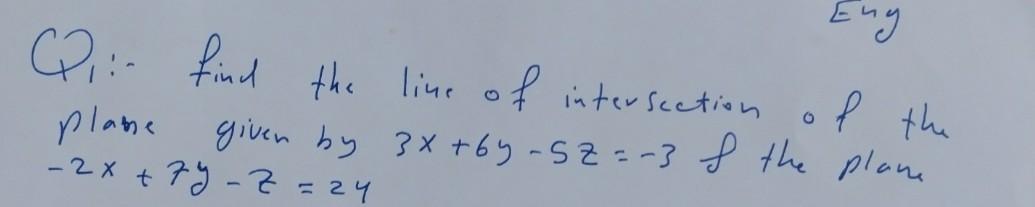 Eng
Q1:- find the line of intersection of the
plane given by 3x + 6y - 5z = -3 & the plane
-2x + 7y - z = 24